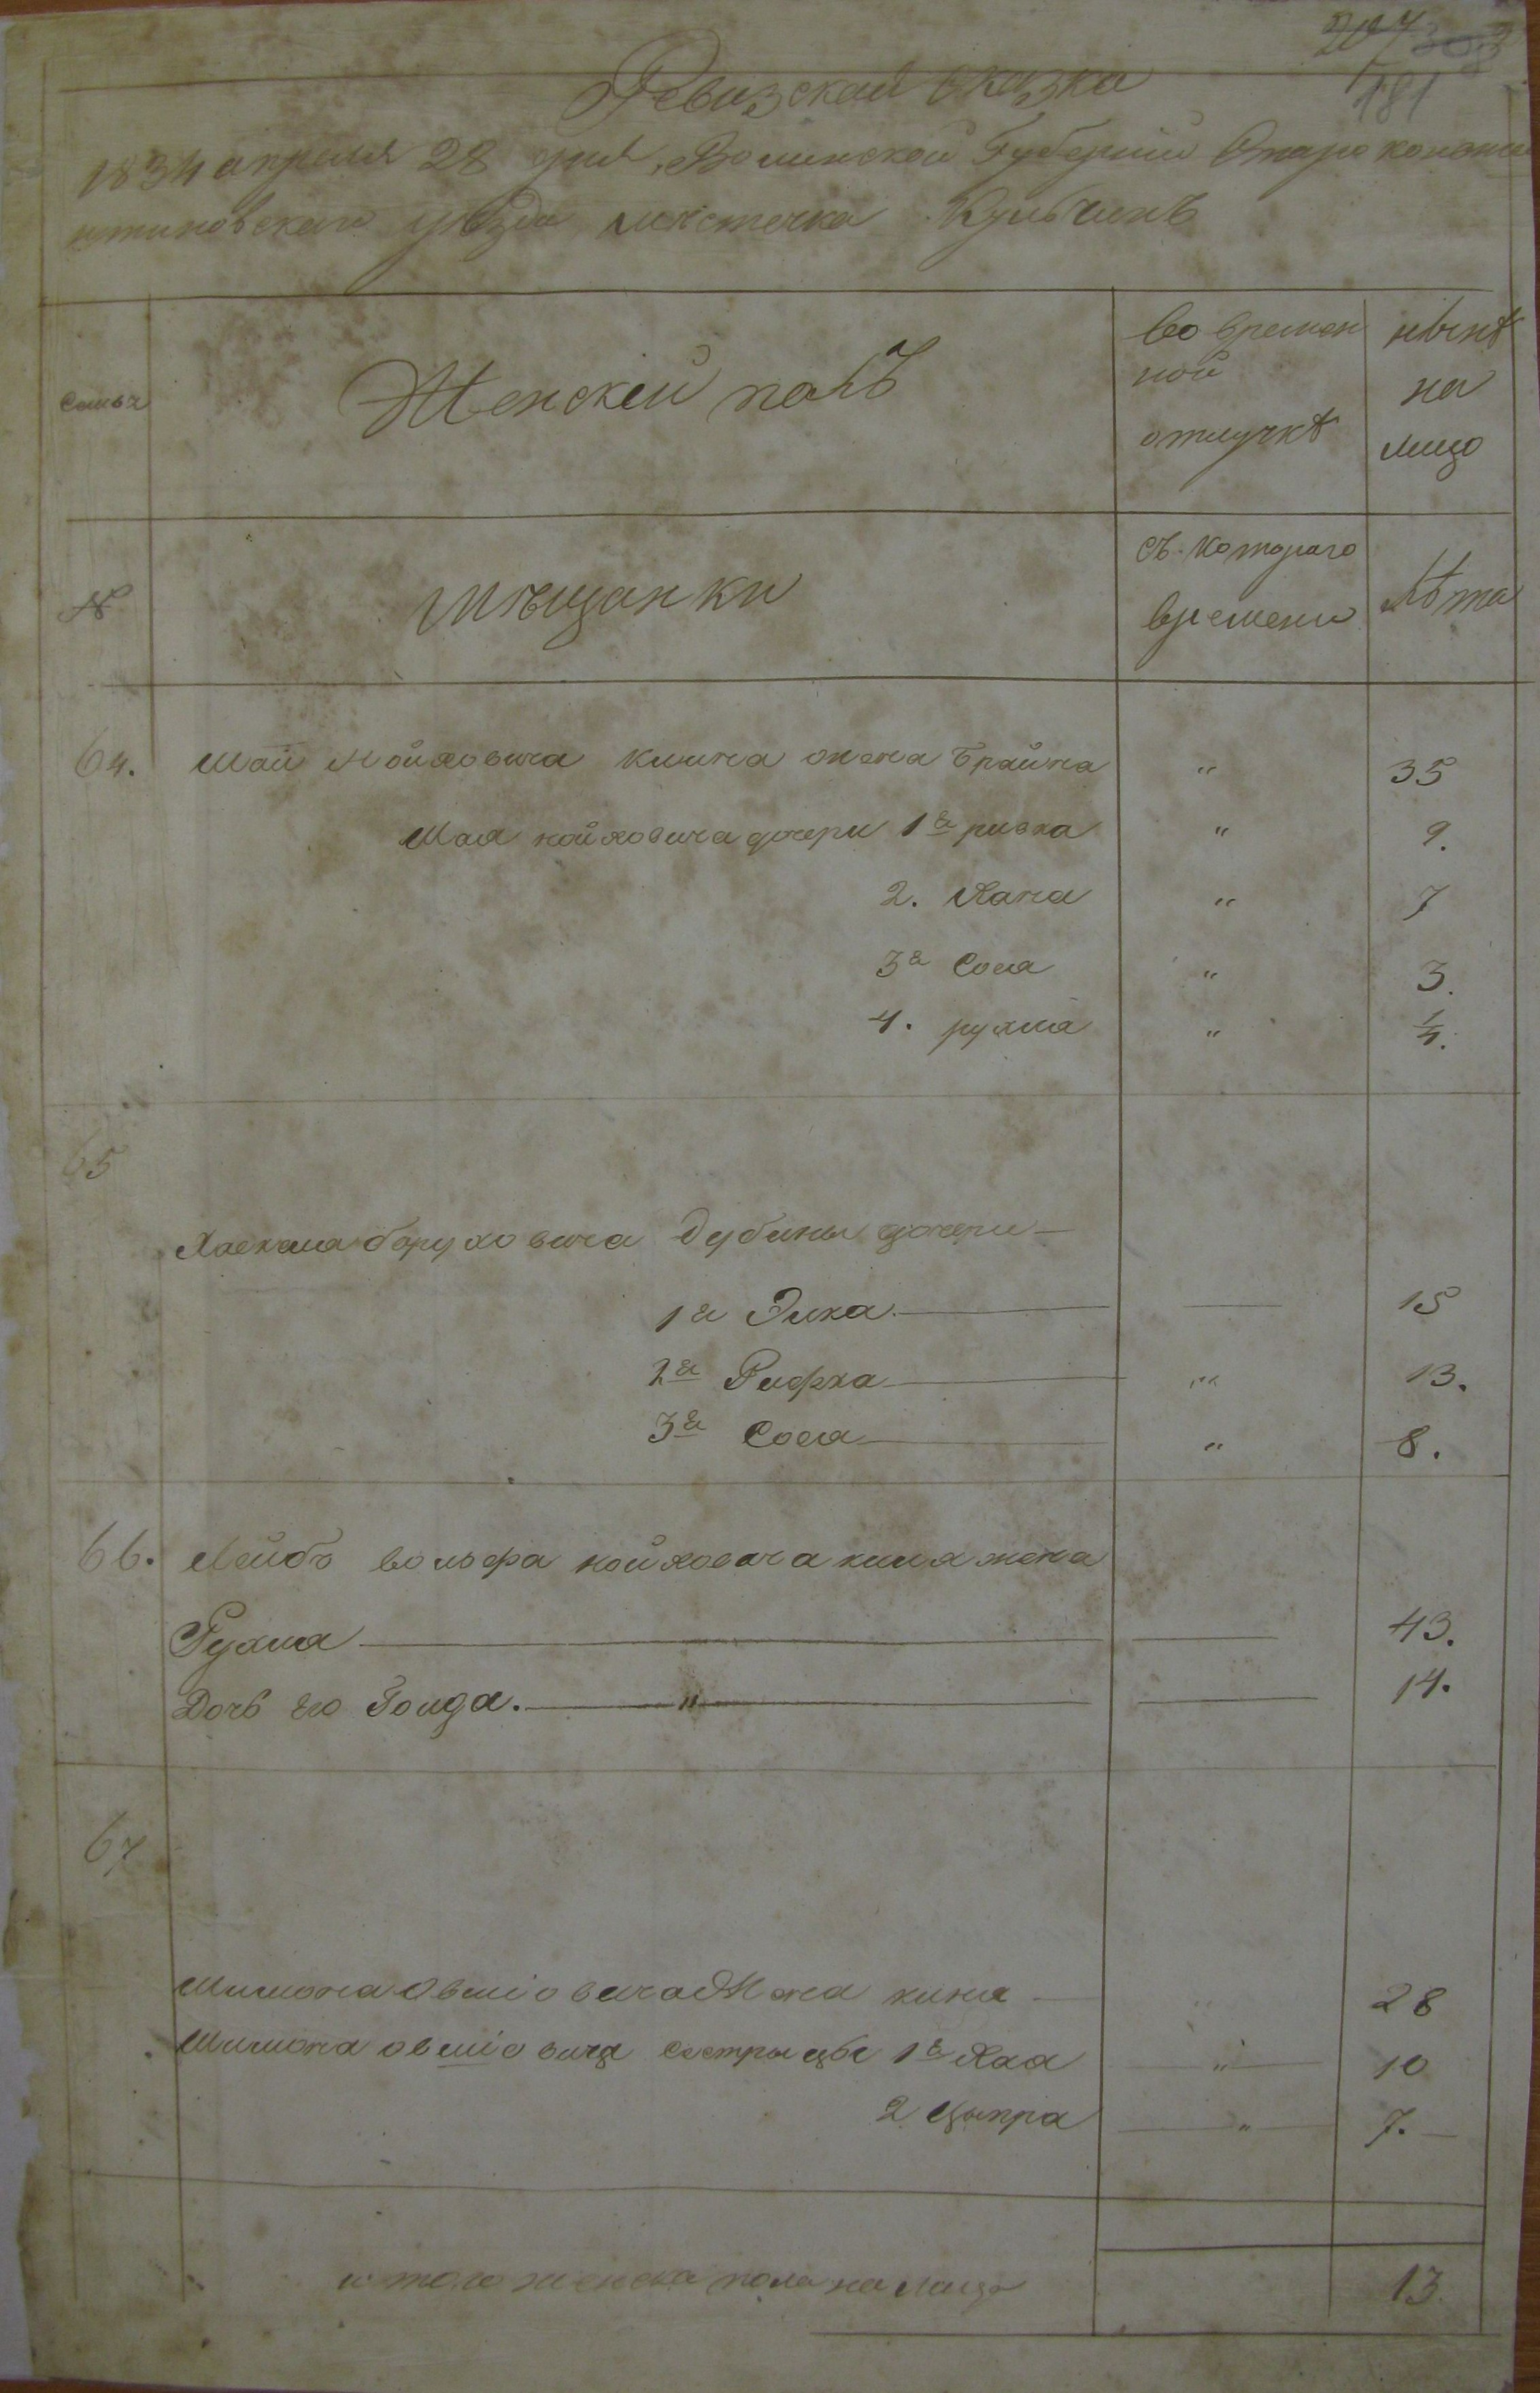 181
Ревизская Сказка
1834 апреля 28 дня, Волинской Губернии Старо констан
тиновскаго уезда местечка Кульчинъ
Семьи
Женскеи полъ
во времен
ной
отлучкѣ
нынѣ
на
лицо
№
Мѣщанки
съ котораго
времени
лѣта
64. Шаи Нойховича жена Брайна " 35
Шая нойховича дочери 1я ривка " 9.
2. Хана " 7
3я Сося " 3.
4. рухля " 1/4.
65
Хаскеля баруховича Дубины дочери
1я Эика 15
2я Рифка " 13.
3я Сося " 8.
66. Лейбъ вольфа нойховича жена
Рухля 43.
Дочь его Голда. " 14.
67
Шимона Овшіовича Жена 28
Шимона овшіовича сестры 1я Хая " 10
2 Цыпра " 7.
итого женска пола на лицо 13